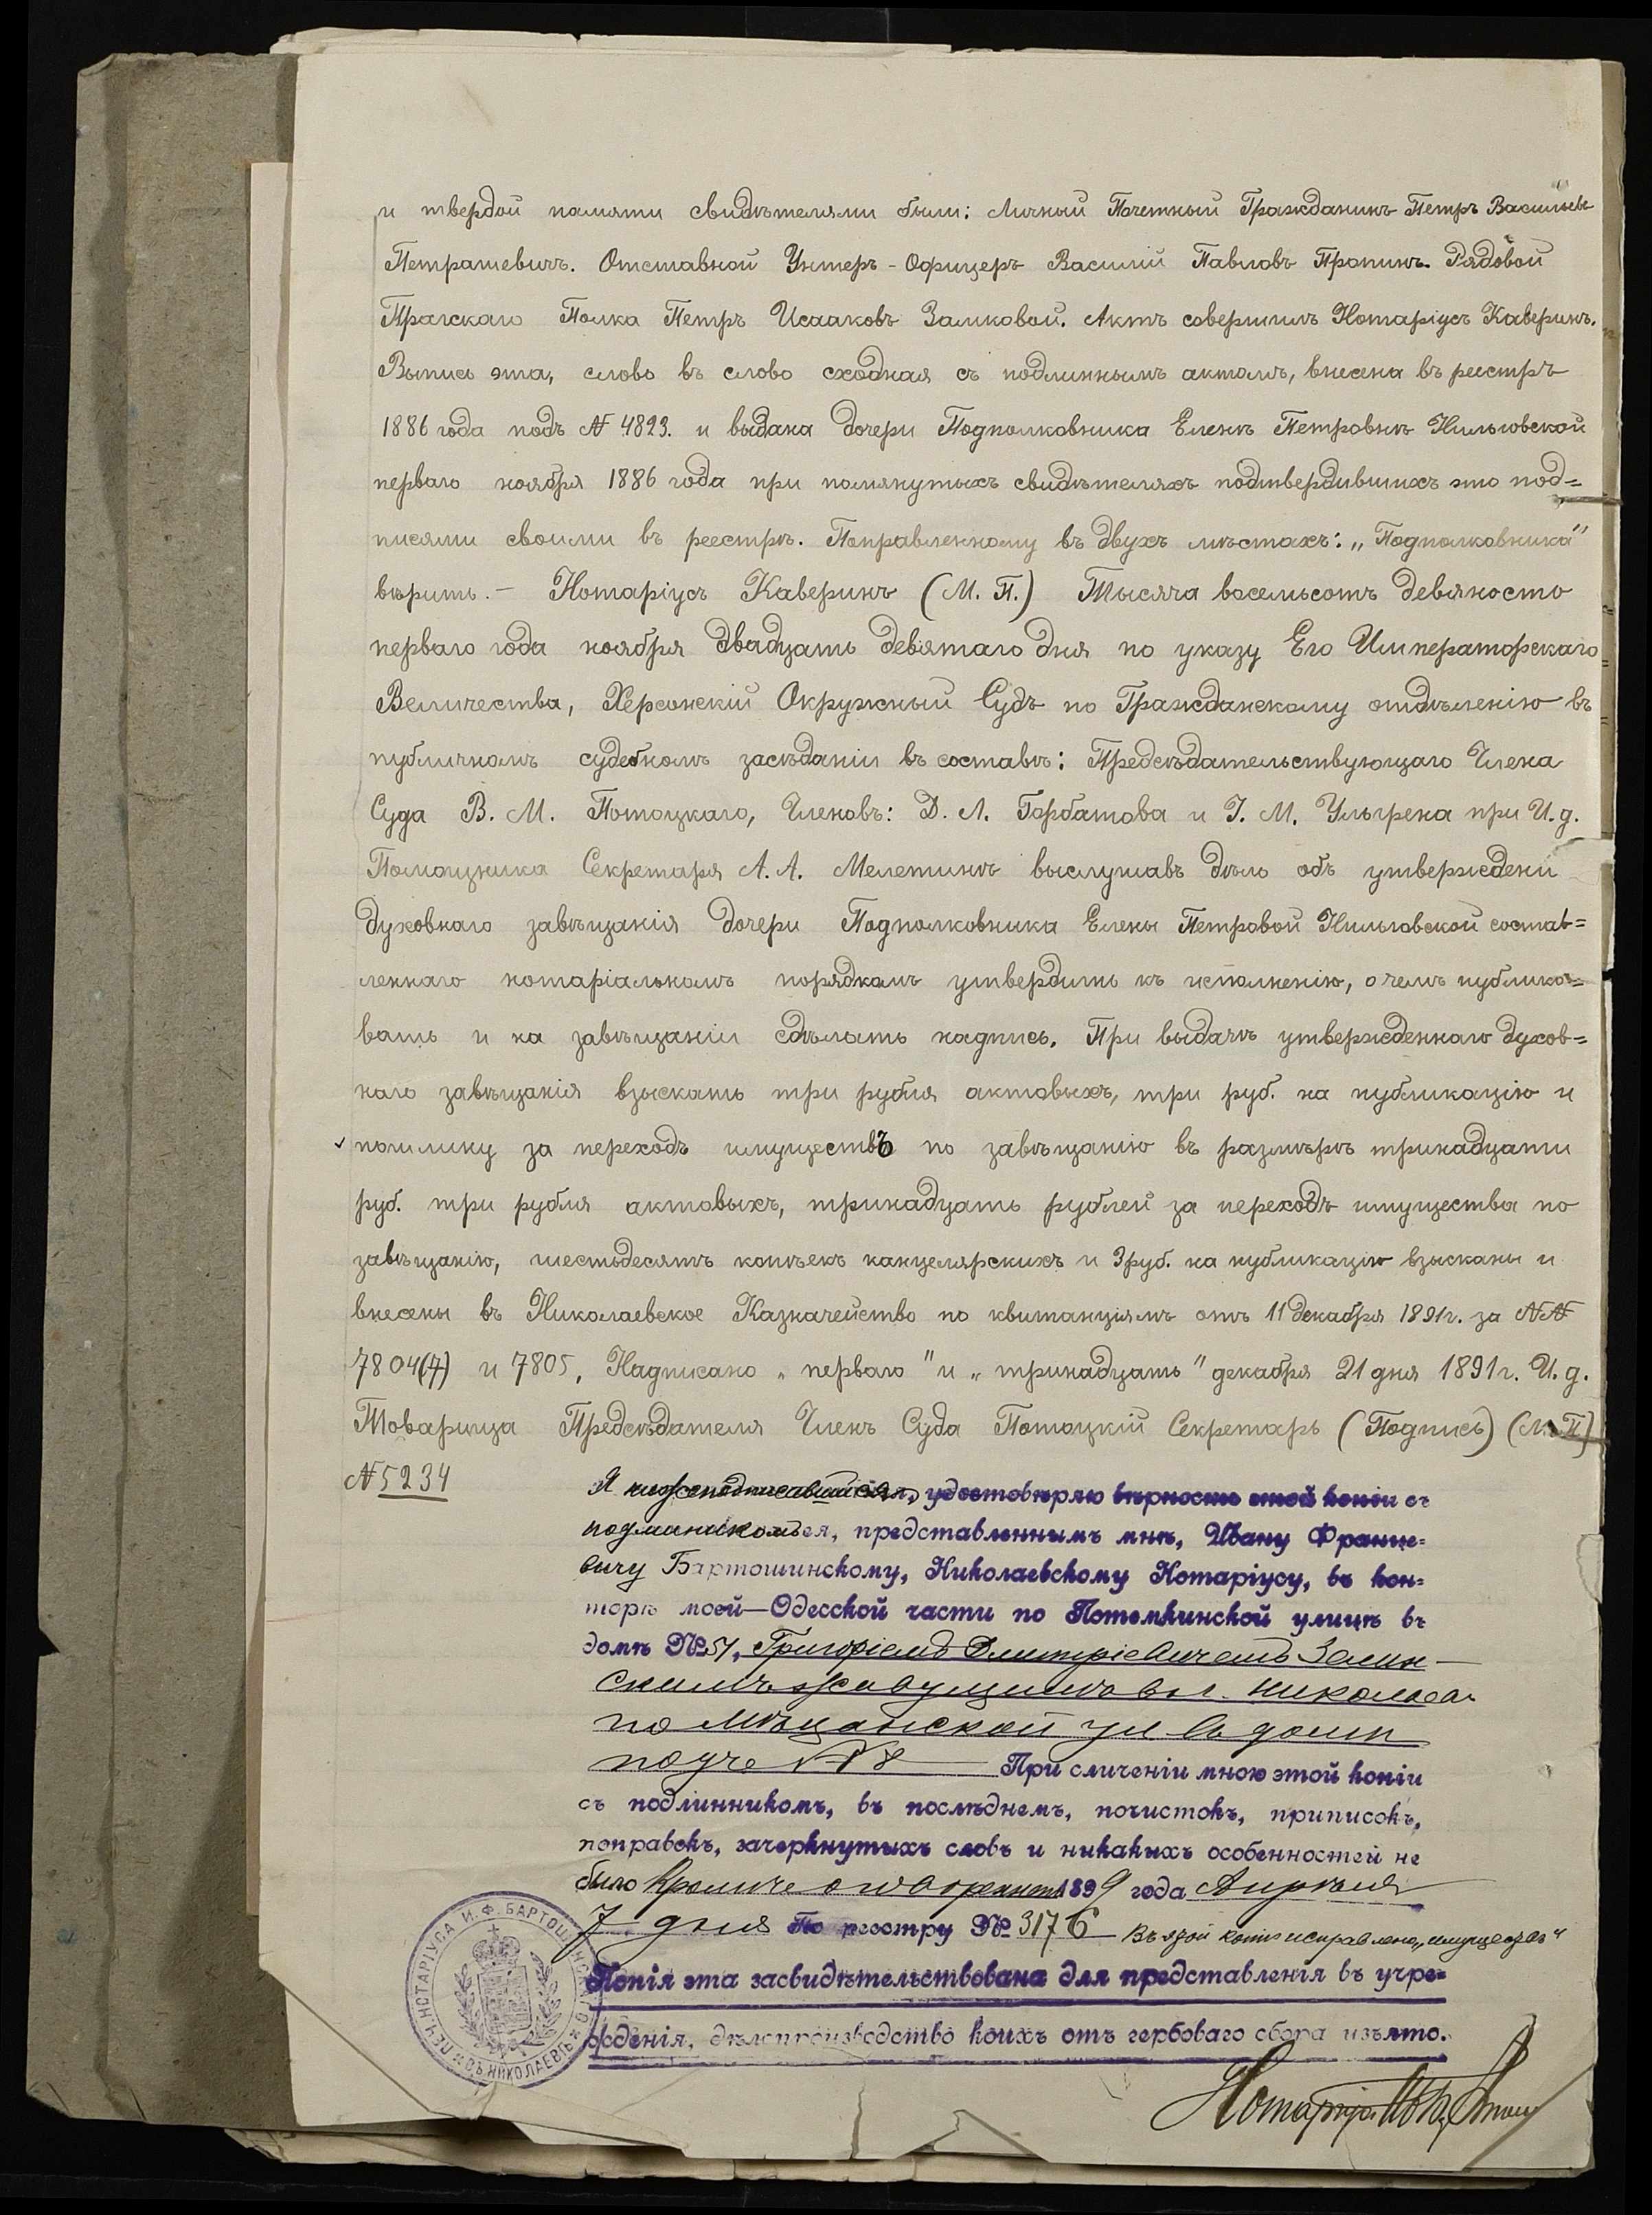 и твердой памяти свидѣтелями были: Личный Почетный Гражданинъ Петръ Васильевъ
Петрашевичъ. Отставной Унтеръ-Офицеръ Василій Павловъ Пронинъ. Рядовой
Прагскаго Полка Петръ Исааковъ Замковой. Актъ совершилъ Нотаріусъ Каверинъ.
Выпись эта, слово въ слово сходная съ подлиннымъ актомъ, внесена въ реестръ
1886 года подъ № 4823. и выдана дочери Подполковника Еленѣ Петровнѣ Нильговской
перваго ноября 1886 года при помянутыхъ свидѣтеляхъ подтвердившихъ это под=
писями своими въ реестрѣ. Поправленному въ двухъ мѣстахъ: „Подполковника"
вѣрить. — Нотаріусъ Каверинъ (М. П.) Тысяча восемьсотъ девяносто
перваго года ноября двадцать девятаго дня по указу Его Императорскаго
Величества, Херсонскій Окружный Судъ по Гражданскому отдѣленію въ
публичномъ судебномъ засѣданіи въ составѣ: Предсѣдательствующаго Члена
Суда В. М. Потоцкаго, Членовъ: Д. Л. Горбатова и І. М. Ульгрена при И. д.
Помощника Секретаря А. А. Мелетинѣ выслушавъ дѣло объ утвержденіи
духовнаго завѣщанія дочери Подполковника Елены Петровой Нильговской состав=
леннаго нотаріальномъ порядкомъ утвердить къ исполненію, о чемъ публико=
вать и на завѣщаніи сдѣлать надпись. При выдачѣ утвержденнаго духов=
наго завѣщанія взыскать три рубля актовыхъ, три руб. на публикацію и
пошлину за переходъ имуществъ по завѣщанію въ размѣрѣ тринадцати
руб. три рубля актовыхъ, тринадцать рублей за переходъ имущества по
завѣщанію, шестьдесятъ копѣекъ канцелярскихъ и 3 руб. на публикацію взысканы и
внесены въ Николаевское Казначейство по квитанціямъ отъ 11 декабря 1891 г. за №№
7804(7) и 7805, Надписано „перваго" и „тринадцать" декабря 21 дня 1891 г. И. д.
Товарища Предсѣдателя Членъ Суда Потоцкій Секретарь (Подпись) (М. П.)
№ 5234
Я нижеподписавшійся, удостовѣряю вѣрность этой копіи съ
подлинникомъ ея, представленнымъ мнѣ, Ивану Франце=
вичу Бартошинскому, Николаевскому Нотаріусу, въ кон=
торѣ моей—Одесской части по Потемкинской улицѣ въ
домѣ № 51, Григоріемъ Дмитріевичемъ Залин-
скимъ живущимъ въ г. Николаевѣ
по Мѣщанской ул въ домѣ
№ 8 При сличеніи мною этой копіи
съ подлинникомъ, въ послѣднемъ, почистокъ, приписокъ,
поправокъ, зачеркнутыхъ словъ и никакихъ особенностей не
было Кромѣ оговоренныхъ 1899 года Апрѣля
7 дня По реестру № 3176 Въ этой копіи исправлено „имуществъ"
Копія эта засвидѣтельствована для представленія въ учре=
жденія, дѣлопроизводство коихъ отъ гербоваго сбора изъято.
Нотаріусъ
ПЕЧ. НОТАРІУСА И. Ф. БАРТОШИНСКАГО ВЪ НИКОЛАЕВѢ